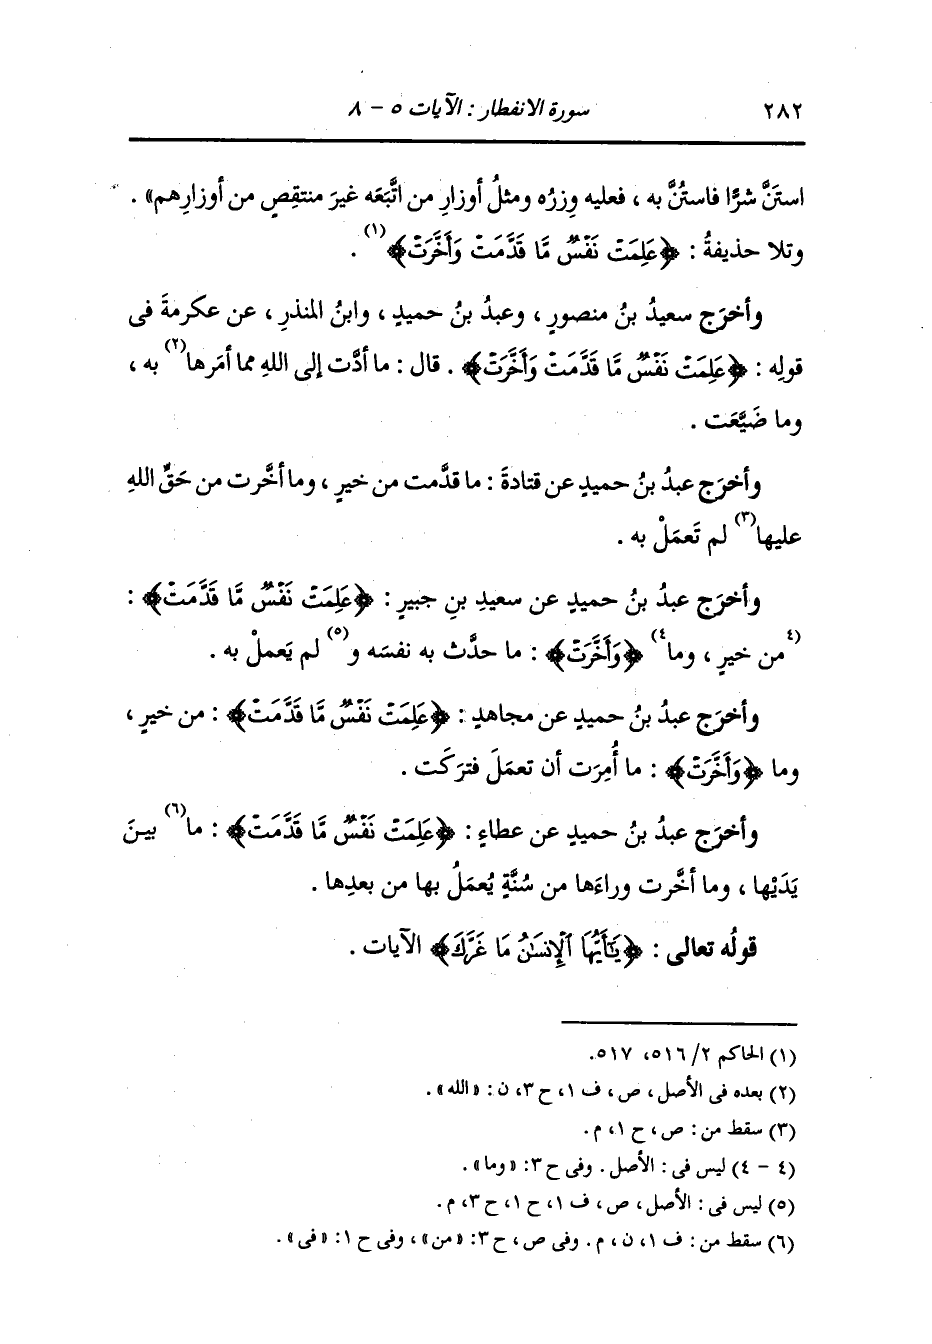 ٢٨٢ سورة الانفطار : الآيات ٥ - ٨
استَنَّ شرًّا فاستُنَّ به ، فعليه وِزرُه ومثلُ أوزارِ من اتَّبَعَه غيرَ منتقِصٍ من أوزارِهم» .
وتلا حذيفةُ : ﴿عَلِمَتْ نَفْسٌ مَّا قَدَّمَتْ وَأَخَّرَتْ﴾(١) .
وأخرَج سعيدُ بنُ منصورٍ ، وعبدُ بنُ حميدٍ ، وابنُ المنذرِ ، عن عكرمةَ فى
قولِه : ﴿عَلِمَتْ نَفْسٌ مَّا قَدَّمَتْ وَأَخَّرَتْ﴾ . قال : ما أدَّت إلى اللهِ مما أمَرها(٢) به ،
وما ضَيَّعَت .
وأخرَج عبدُ بنُ حميدٍ عن قتادةَ : ما قدَّمت من خيرٍ ، وما أخَّرت من حَقٍّ اللهِ
عليها(٣) لم تَعمَلْ به .
وأخرَج عبدُ بنُ حميدٍ عن سعيدِ بنِ جبيرٍ : ﴿عَلِمَتْ نَفْسٌ مَّا قَدَّمَتْ﴾ :
(٤من خيرٍ ، وما٤) ﴿وَأَخَّرَتْ﴾ : ما حدَّث به نفسَه و(٥) لم يَعملْ به .
وأخرَج عبدُ بنُ حميدٍ عن مجاهدٍ : ﴿عَلِمَتْ نَفْسٌ مَّا قَدَّمَتْ﴾ : من خيرٍ ،
وما ﴿وَأَخَّرَتْ﴾ : ما أُمِرَت أن تعمَلَ فترَكَت .
وأخرَج عبدُ بنُ حميدٍ عن عطاءٍ : ﴿عَلِمَتْ نَفْسٌ مَّا قَدَّمَتْ﴾ : ما(٦) بينَ
يَدَيْها ، وما أخَّرت وراءَها من سُنَّةٍ يُعمَلُ بها من بعدِها .
قولُه تعالى : ﴿يَٰٓأَيُّهَا ٱلْإِنسَٰنُ مَا غَرَّكَ﴾ الآيات .
(١) الحاكم ٢/ ٥١٦، ٥١٧.
(٢) بعده فى الأصل ، ص ، ف ١، ح ٣، ن : «الله» .
(٣) سقط من : ص ، ح ١، م .
(٤ - ٤) ليس فى : الأصل . وفى ح ٣: «وما» .
(٥) ليس فى : الأصل ، ص ، ف ١، ح ١، ح ٣، م .
(٦) سقط من : ف ١، ن ، م . وفى ص ، ح ٣: «من» ، وفى ح ١: «فى» .